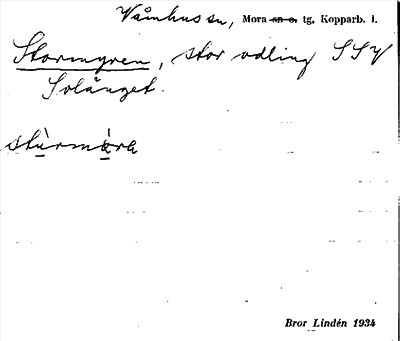 Våmhus sn, Mora sn o. tg, Kopparb. l.
Stormyren, stor odling SSV
Solänget.
Bror Lindén 1934